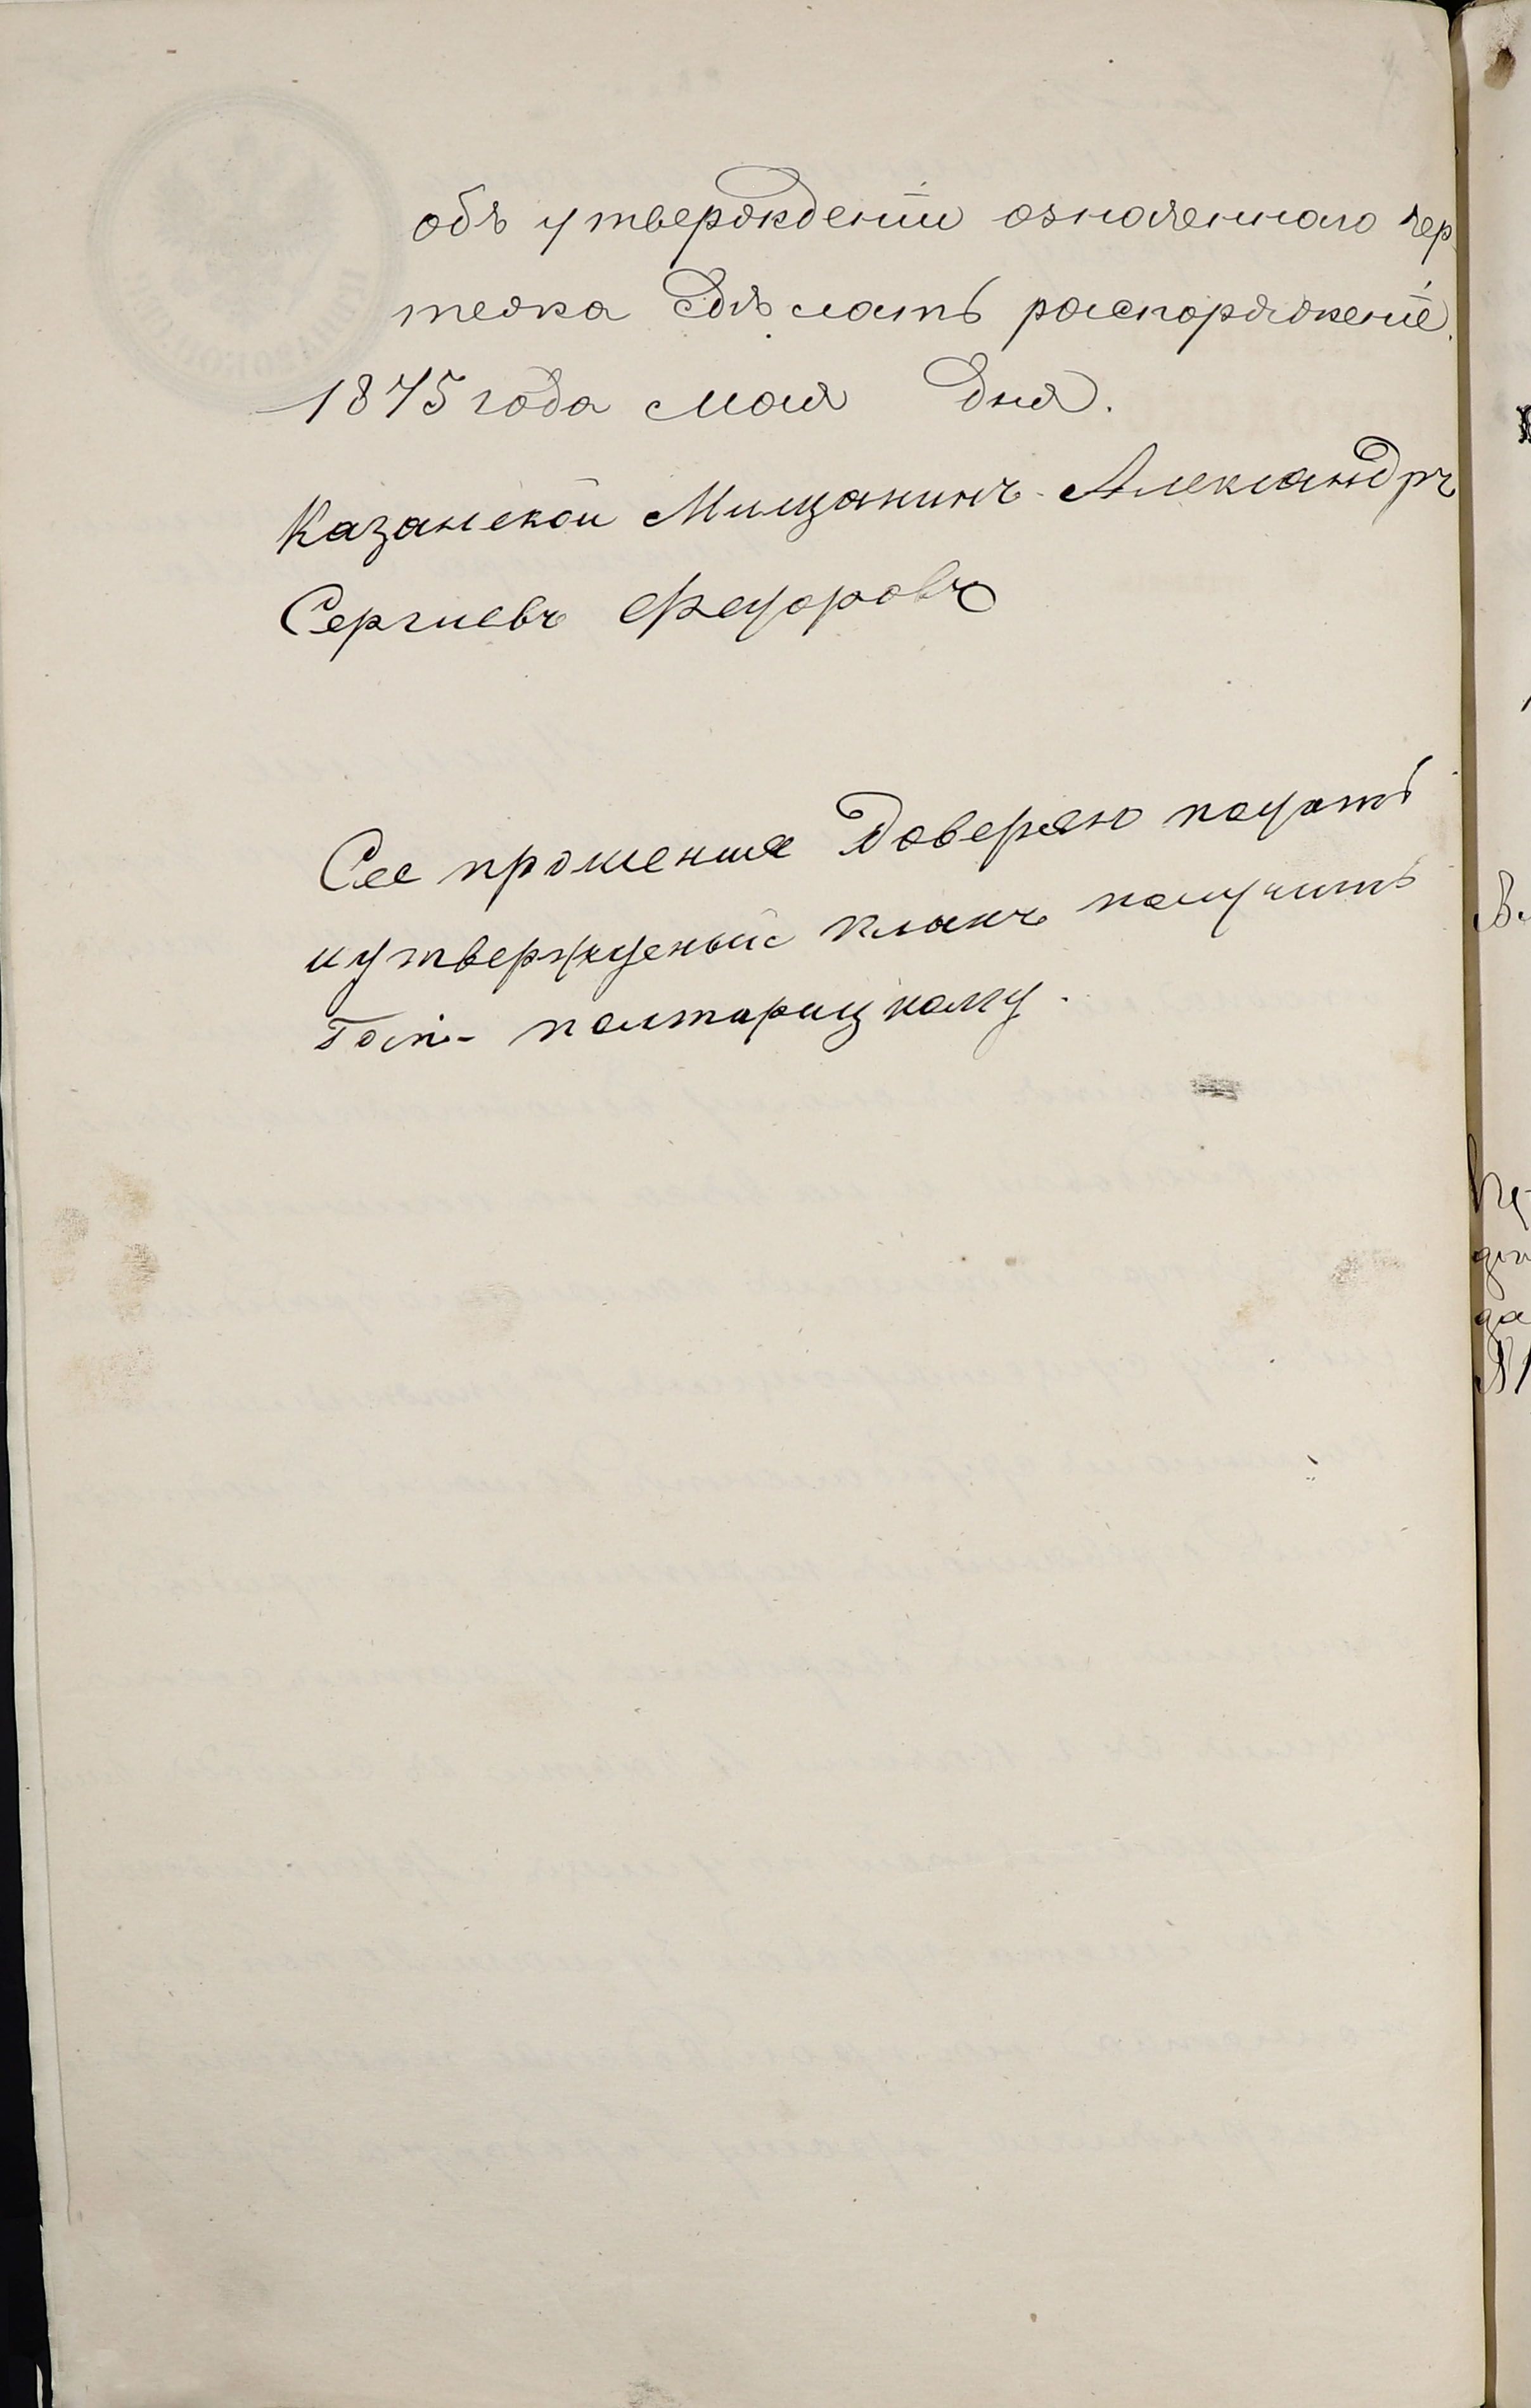 объ утвержденіи означеннаго чер
тежа сдѣлать распоряженіе.
1875 года мая дня.
Казанской Мищанинъ Александръ
Сергиевъ Федоровъ
Сее прошение доверяю подать
иутвержденый планъ получить
Госп- полтарацкому.